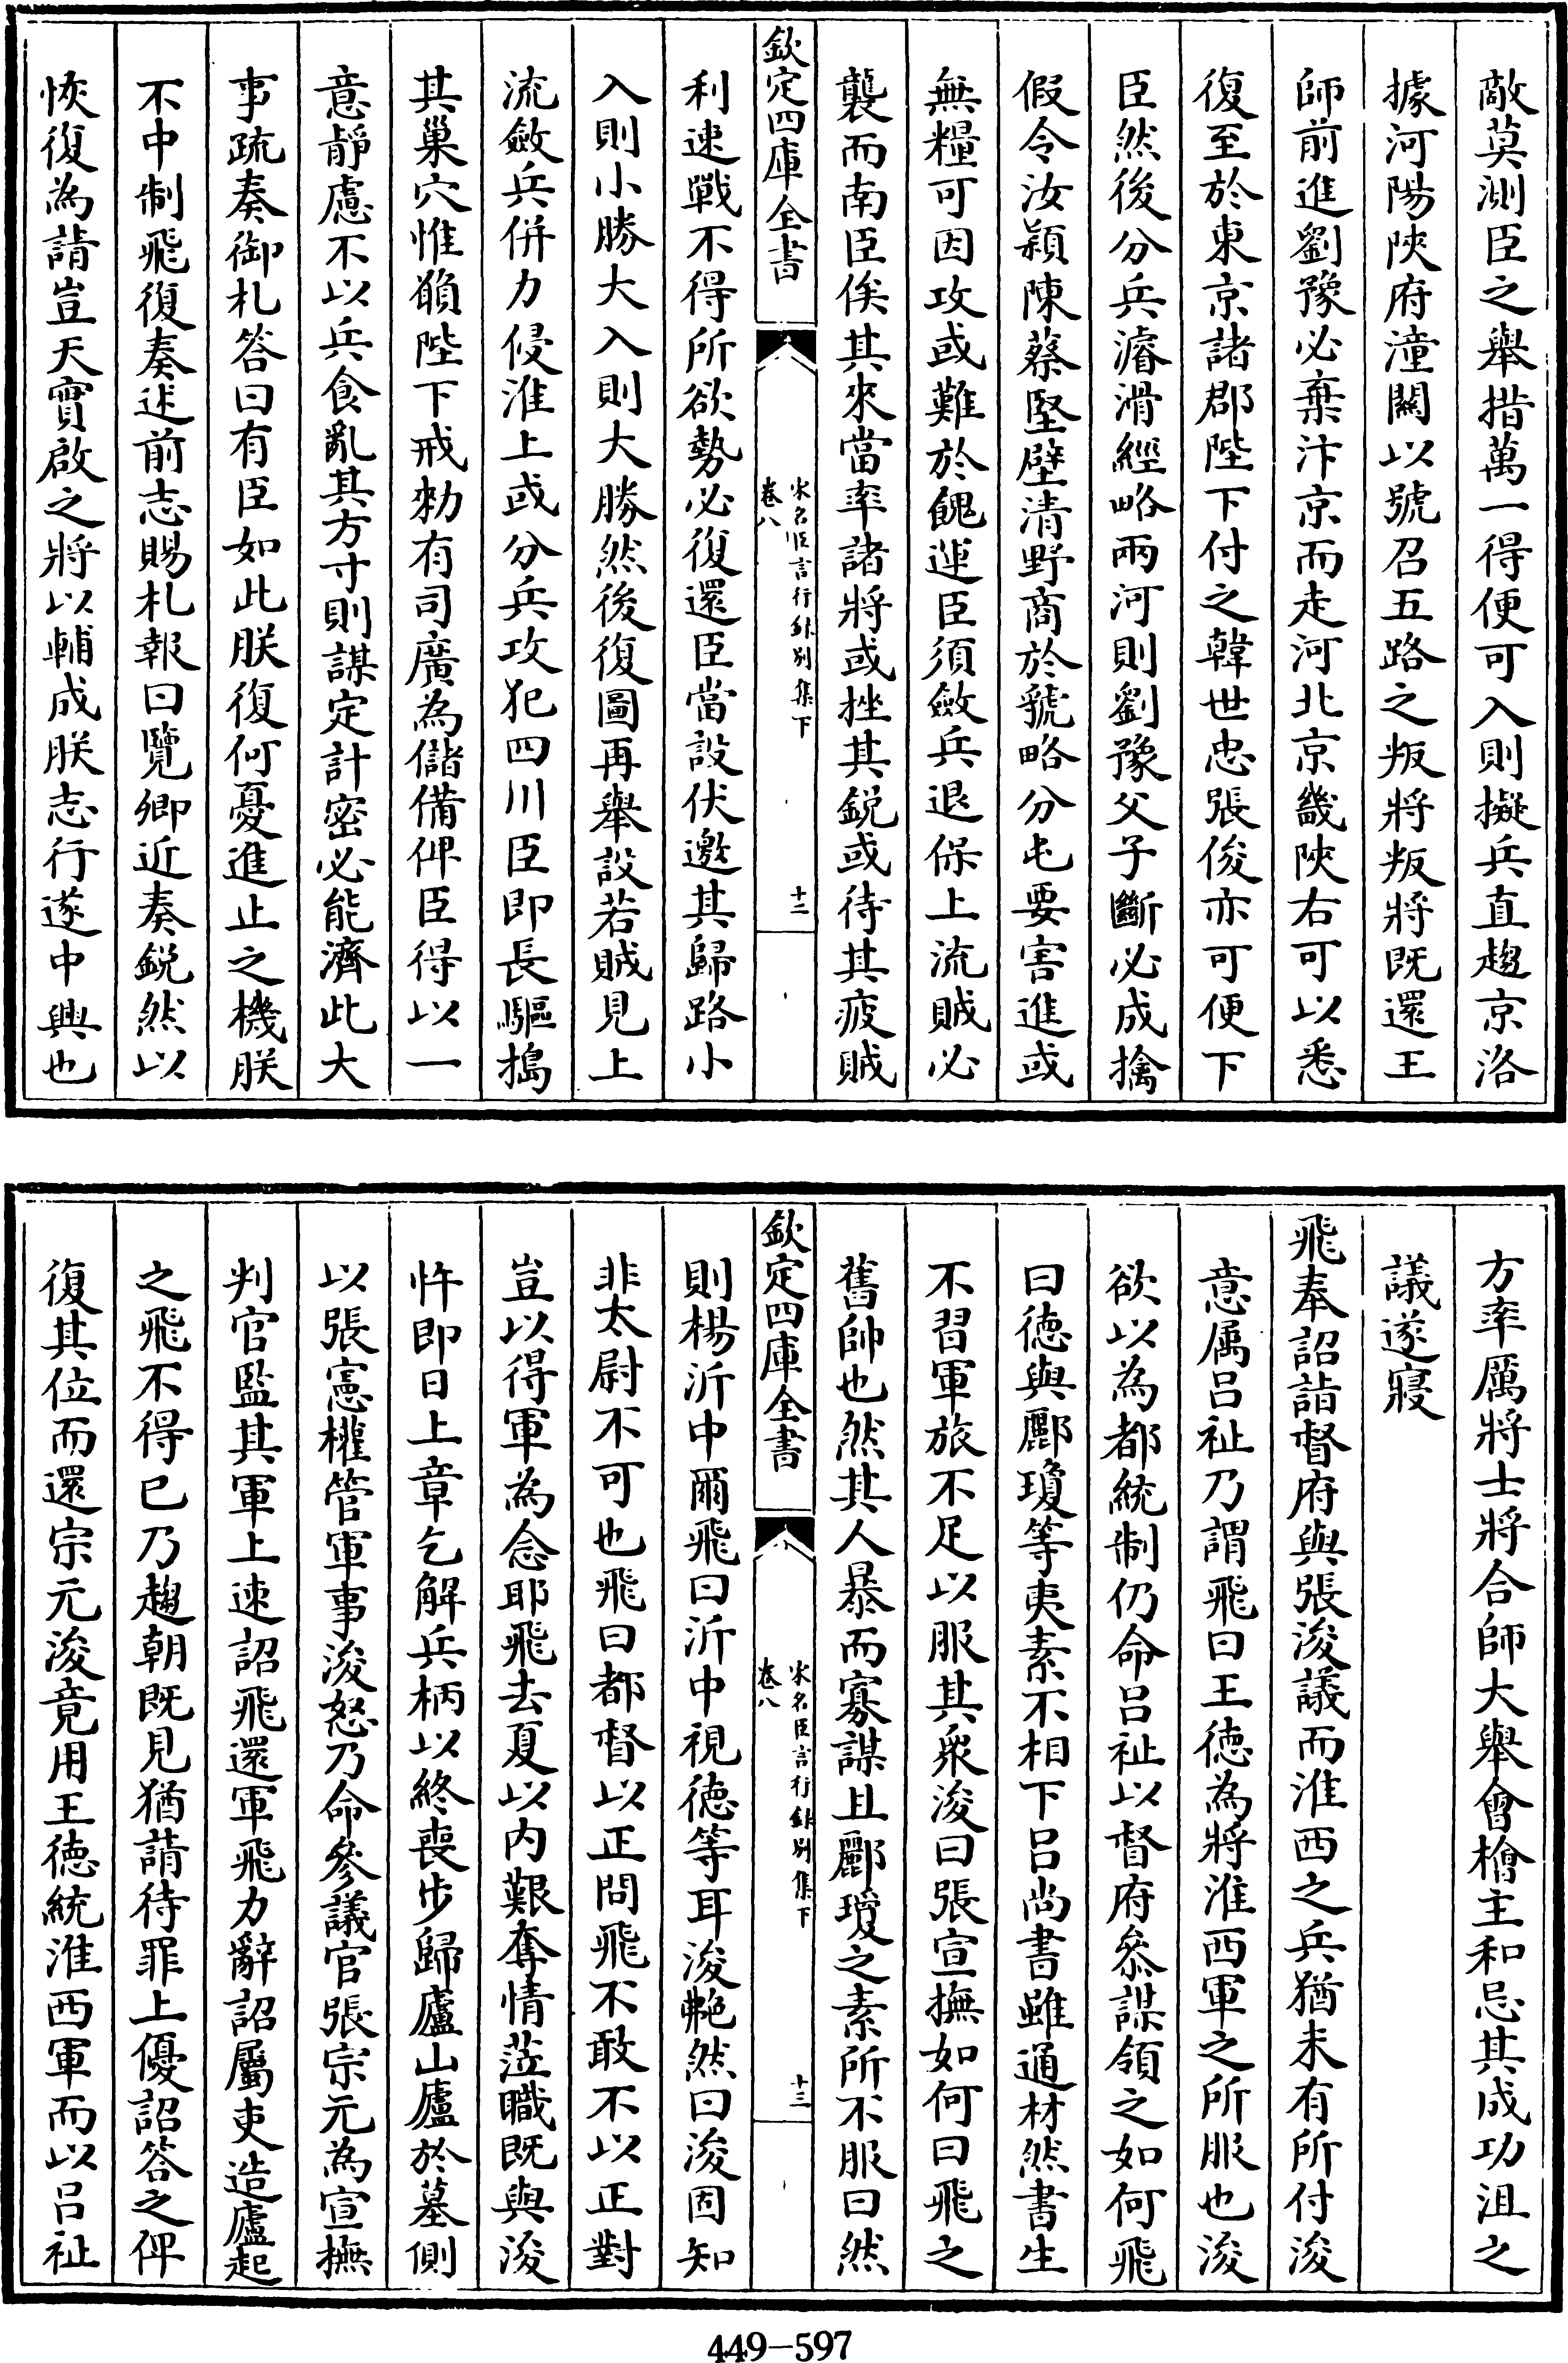 敵莫測臣之舉措萬一得便可入則擬兵直趨京洛
據河陽陜府潼關以號召五路之叛將叛將既還王
師前進劉豫必棄汴京而走河北京畿陜右可以悉
復至於東京諸郡陛下付之韓世忠張俊亦可便下
臣然後分兵濬滑經略兩河則劉豫父子斷必成擒
假令汝潁陳蔡堅壁清野商於虢略分屯要害進或
無糧可因攻或難於餽運臣須斂兵退保上流賊必
襲而南臣俟其來當率諸將或挫其鋭或待其疲賊
欽定四庫全書
宋名臣言行錄別集下
卷八
十二
利速戰不得所欲勢必復還臣當設伏邀其歸路小
入則小勝大入則大勝然後復圖再舉設若賊見上
流斂兵併力侵淮上或分兵攻犯四川臣即長驅搗
其巢穴惟願陛下戒勑有司廣為儲備俾臣得以一
意靜慮不以兵食亂其方寸則謀定計密必能濟此大
事疏奏御札答曰有臣如此朕復何憂進止之機朕
不中制飛復奏述前志賜札報曰覽卿近奏鋭然以
恢復為請豈天實啟之將以輔成朕志行遂中興也
方率厲將士將合師大舉會檜主和忌其成功沮之
議遂寢
飛奉詔詣督府與張浚議而淮西之兵猶未有所付浚
意属吕祉乃謂飛曰王徳為將淮西軍之所服也浚
欲以為都統制仍命吕祉以督府叅謀領之如何飛
曰徳與酈瓊等夷素不相下吕尚書雖通材然書生
不習軍旅不足以服其衆浚曰張宣撫如何曰飛之
舊帥也然其人暴而寡謀且酈瓊之素所不服曰然
欽定四庫全書
宋名臣言行錄別集下
卷八
十三
則楊沂中爾飛曰沂中視徳等耳浚艴然曰浚固知
非太尉不可也飛曰都督以正問飛不敢不以正對
豈以得軍為念耶飛去夏以内艱奪情莅職既與浚
忤即日上章乞解兵柄以終喪步歸廬山廬於墓側
以張憲權管軍事浚怒乃命參議官張宗元為宣撫
判官監其軍上速詔飛還軍飛力辭詔屬吏造廬起
之飛不得已乃趨朝既見猶請待罪上優詔答之俾
復其位而還宗元浚竟用王徳統淮西軍而以吕祉
449-597